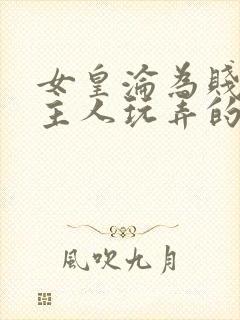 女皇淪為賤
主人玩弄的
風吹九月